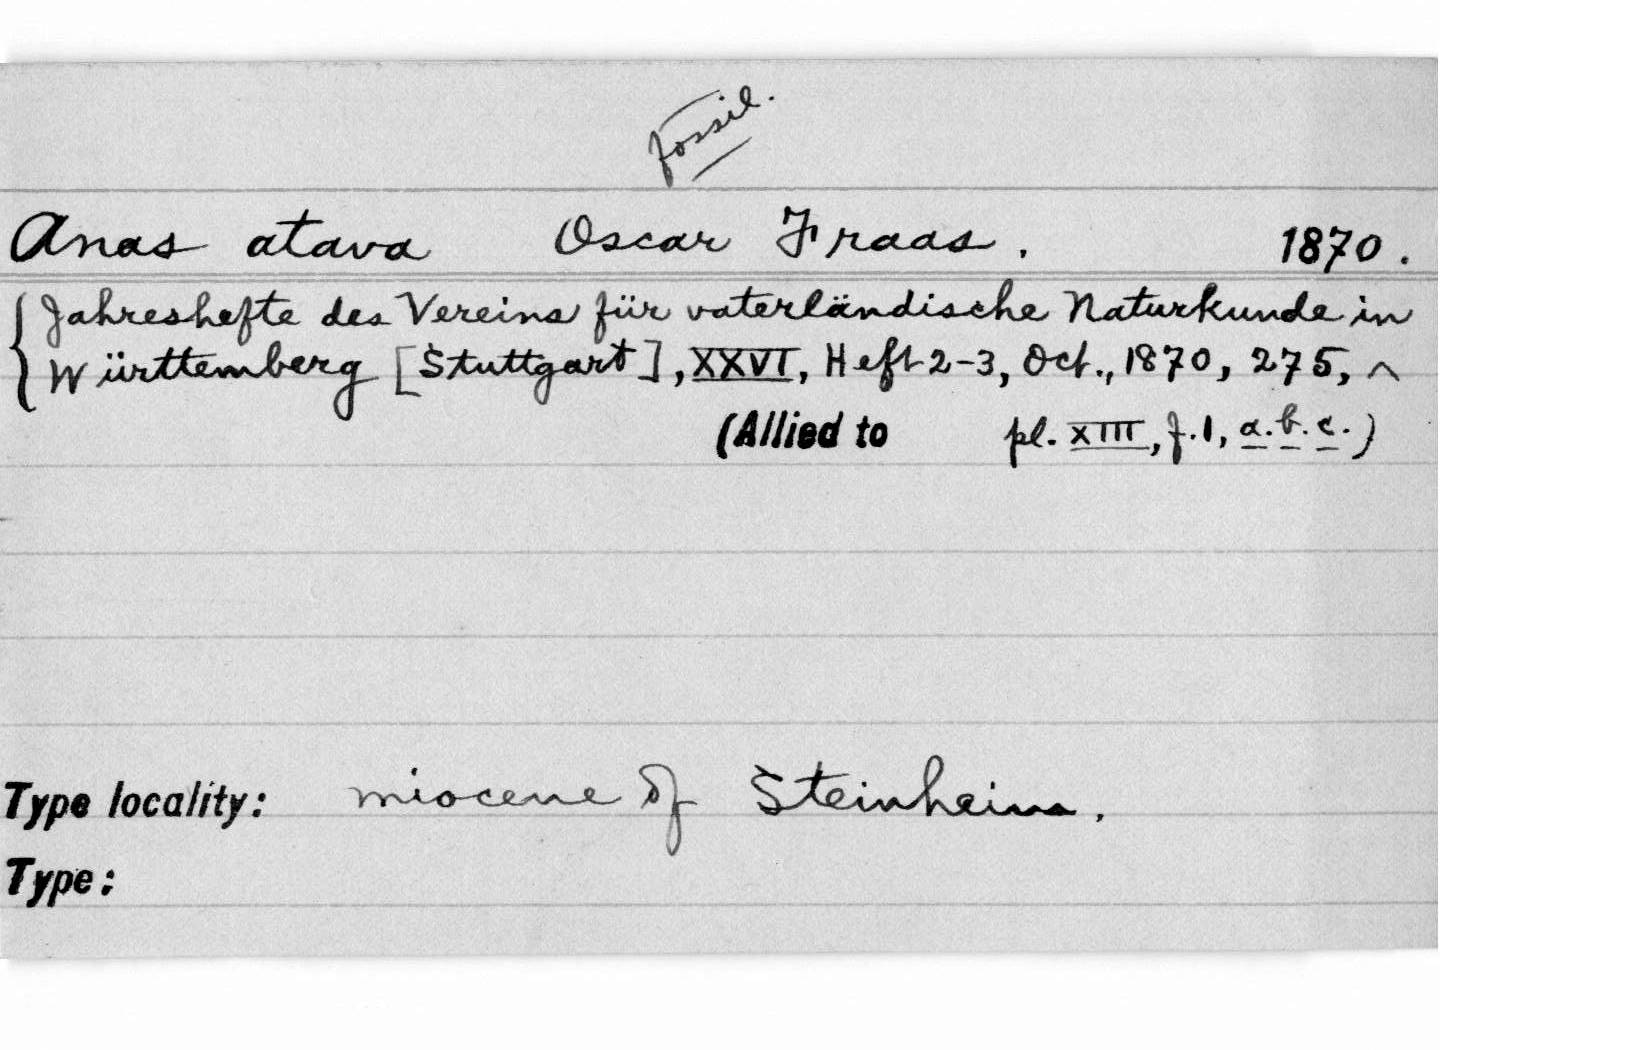 fossil.
Anas atava Oscar Fraas. 1870.
{Jahreshefte des Vereins für vaterländische Naturkunde in
Württemberg [Stuttgart], XXVI, Heft 2-3, Oct., 1870, 275, ^
(Allied to pl. XIII, f. 1, a. b. c.)
Type locality: miocene of Steinheim.
Type: